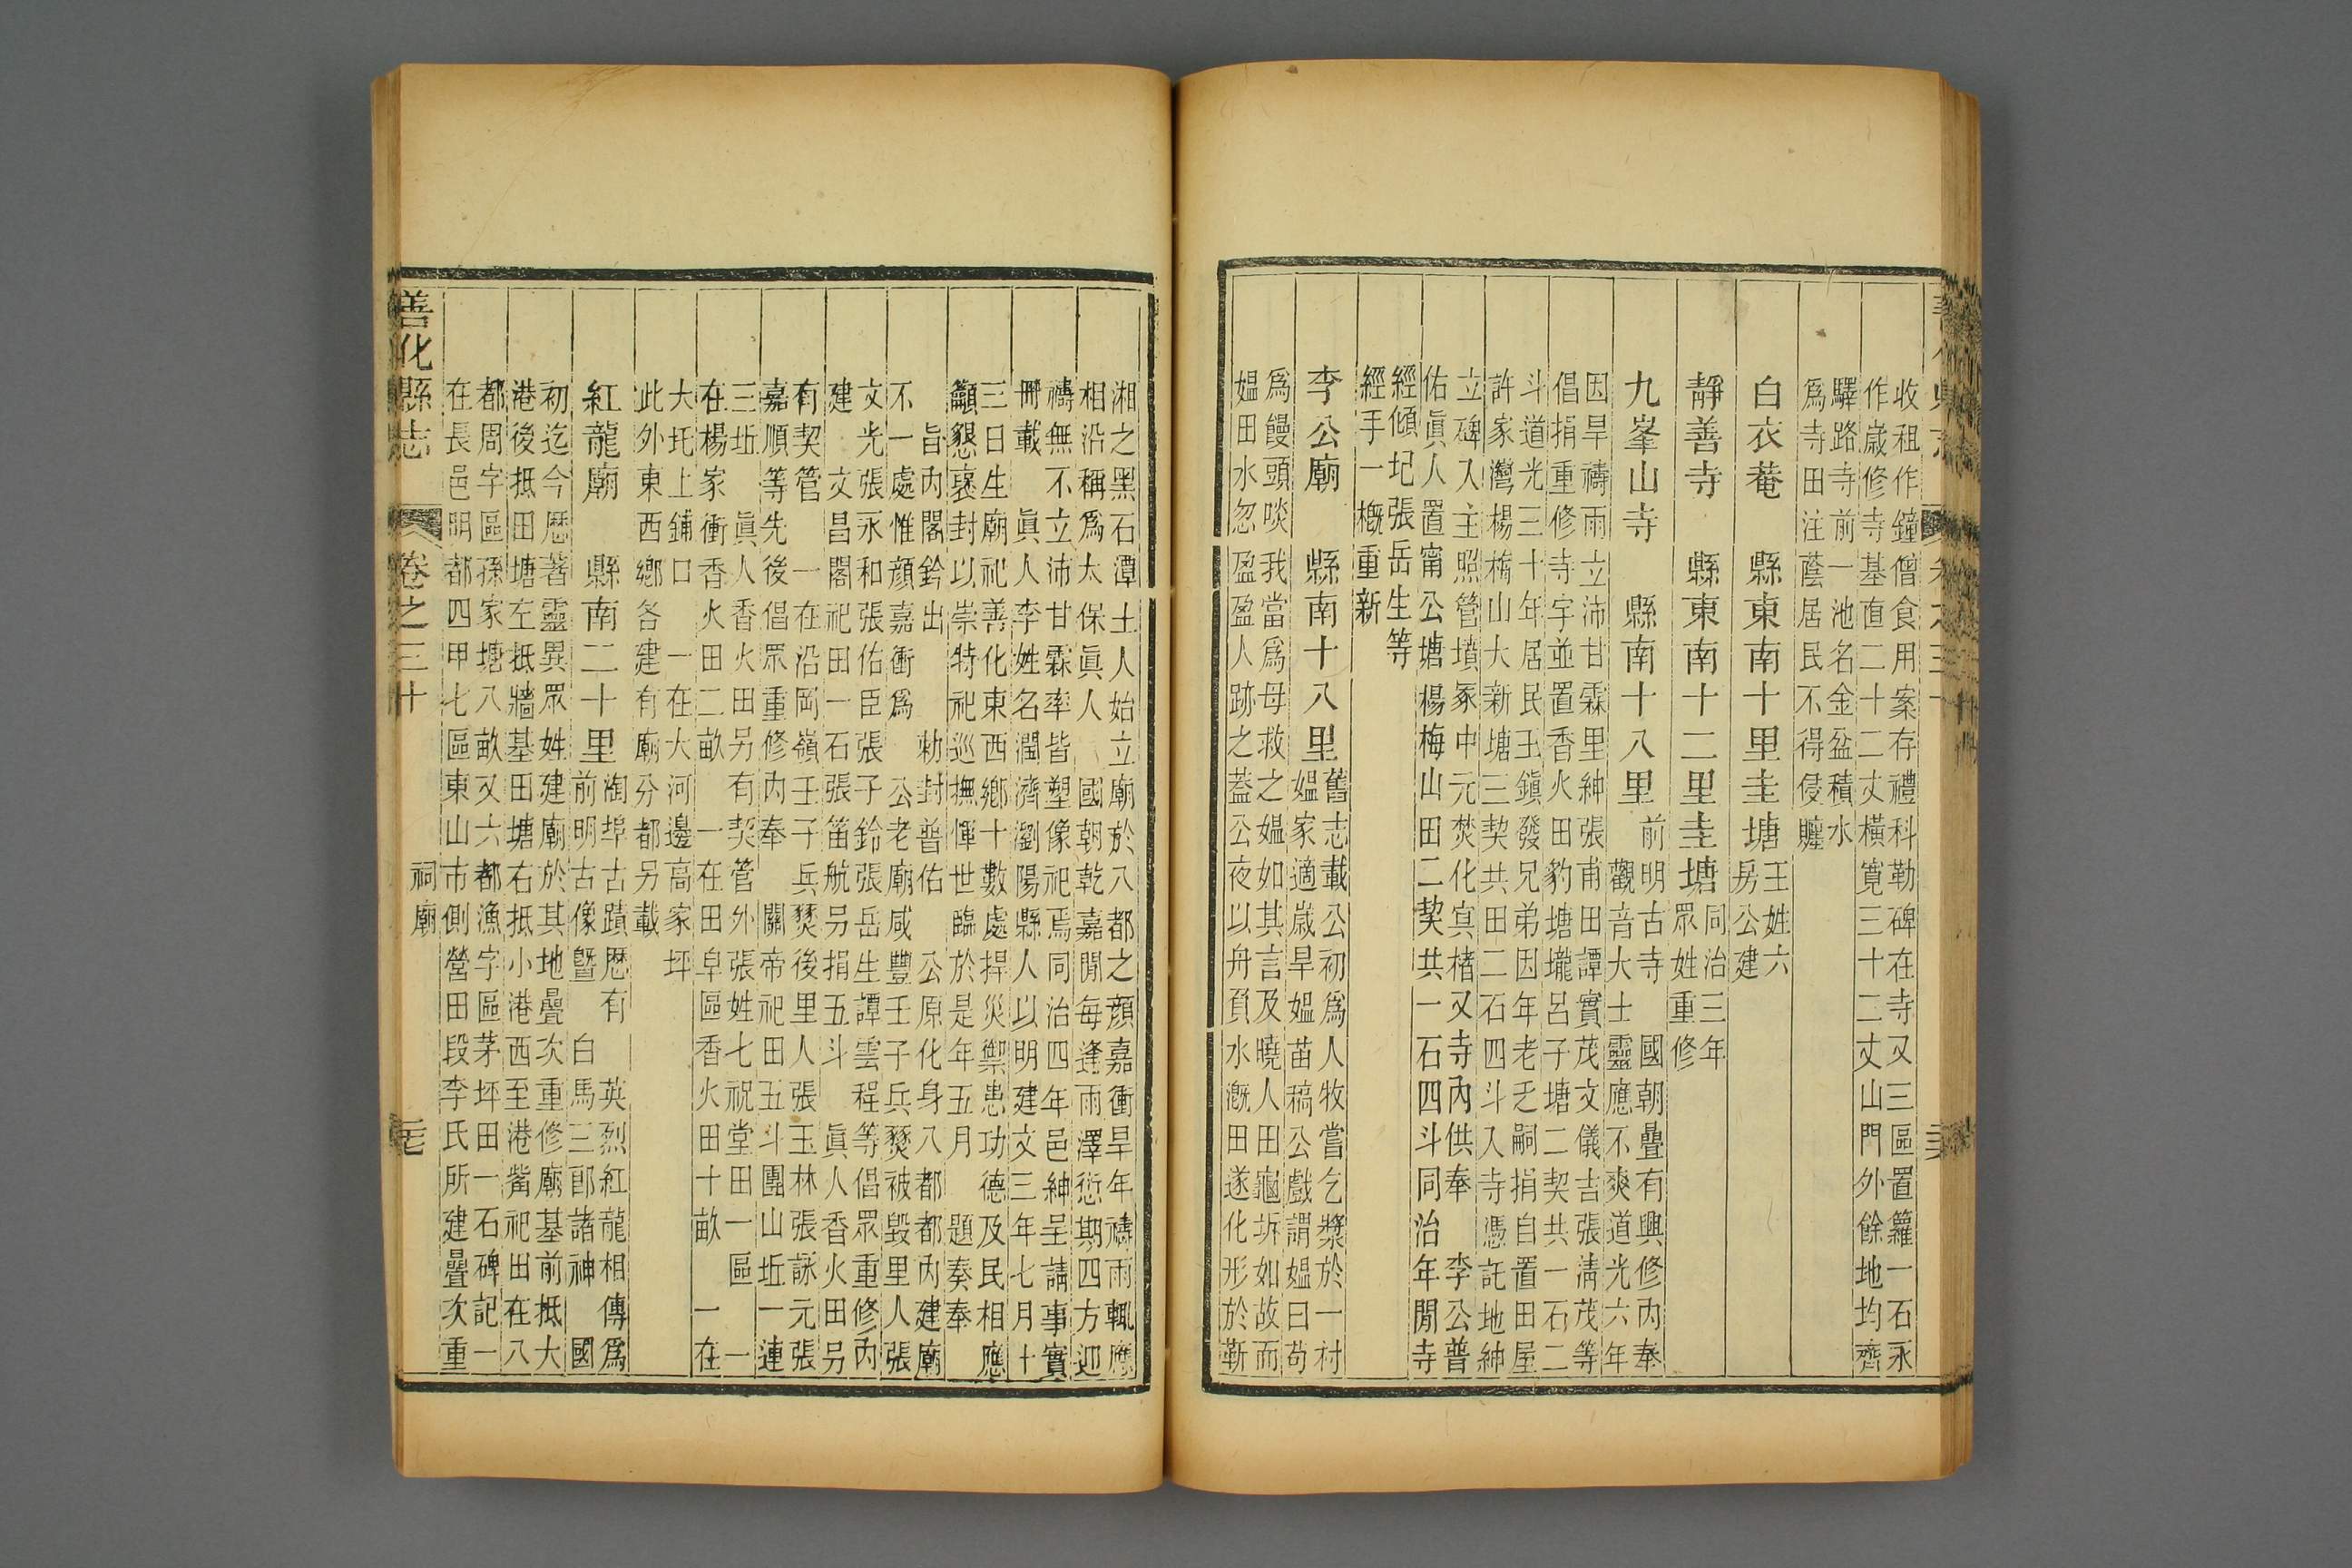 收租作鐘僧食用案存禮科勒碑在寺又三區置籮一石永
作歲修寺基直二十二丈橫寬三十二丈山門外餘地均齊
驛路寺前一池名金盆積水
爲寺田注蔭居民不得侵賍
白衣菴　縣東南十里圭塘
王姓六
房公建
靜善寺　縣東南十二里圭塘
同治三年
眾姓重修
九峯山寺　縣南十八里
前明古寺　國朝疊有興修內奉
觀音大士靈應不爽道光六年
因旱禱雨立沛甘霖里紳張甫田譚實茂文儀吉張清茂等
倡捐重修寺宇並置香火田豹塘壠呂子塘二契共一石二
斗道光三十年居民王鎮發兄弟因年老乏嗣捐自置田屋
許家灣楊楕山大新塘三契共田二石四斗入寺憑託地紳
立碑入主照管墳冢中元焚化㝠楮又寺內供奉　李公普
佑眞人置甯公塘楊梅山田二契共一石四斗同治年閒寺
經傾圮張岳生等
經手一槪重新
李公廟　縣南十八里
舊志載公初爲人牧嘗乞漿於一村
媼家適歲旱媼苗稿公戲謂媼曰苟
爲饅頭啖我當爲母救之媼如其言及曉人田龜坼如故而
媼田水忽盈盈人跡之蓋公夜以舟頁水漑田遂化形於靳
湘之黑石潭土人始立廟於八都之顏嘉衝旱年禱雨輒應
相沿稱爲太保眞人　國朝乾嘉閒每逢雨澤愆期四方迎
禱無不立沛甘霖率皆塑像祀焉同治四年邑紳呈請事實
冊載　眞人李姓名潤濟瀏陽縣人以明建文三年七月十
三日生廟祀善化東西鄉十數處捍災禦患功德及民相應
籲懇襃封以崇特祀巡撫惲世臨於是年五月　題奏奉
旨內閣鈴出　勅封普佑　公原化身八都都內建廟
不一處惟顏嘉衝爲　公老廟咸豐壬子兵燹被毀里人張
文光張永和張佑臣張子鈴張岳生譚雲程等倡眾重修內
建　文昌閣祀田一石張笛航另捐五斗　眞人香火田另
有契管　一在沿岡嶺壬子兵燹後里人張玉林張詠元張
嘉順等先後倡眾重修內奉　關帝祀田五斗團山坵一連
三坵　眞人香火田另有契管外張姓七祝堂田一區　一
在楊家衝香火田二畝　一在田皁區香火田十畝　一在
大圫上鋪口　一在大河邊高家坪
此外東西鄉各建有廟分都另載
紅龍廟　縣南二十里
淘埠古蹟歷有　英烈紅龍相傳爲
前明古像曁　白馬三郎諸神　國
初迄今歷著靈異眾姓建廟於其地疊次重修廟基前抵大
港後抵田塘左抵牆基田塘右抵小港西至港觜祀田在八
都周字區孫家塘八畝又六都漁字區茅坪田一石碑記一
在長邑明都四甲七區東山市側營田段李氏所建疊次重
善化縣志　卷之三十　祠廟　三七